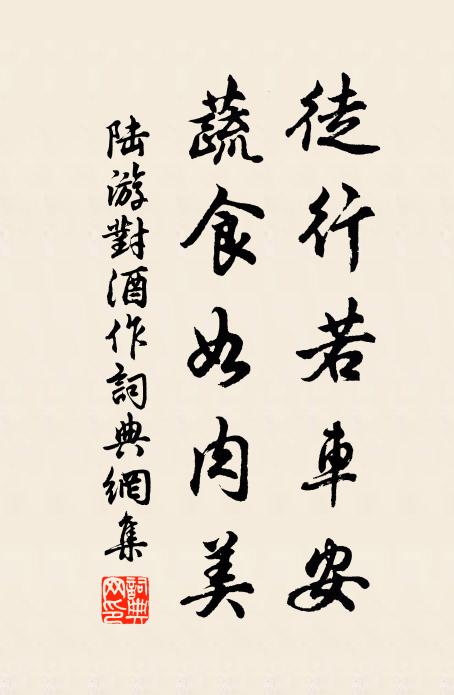 徒行若車安
蔬食如肉美
陆游對酒作詞典網集
詞典网印